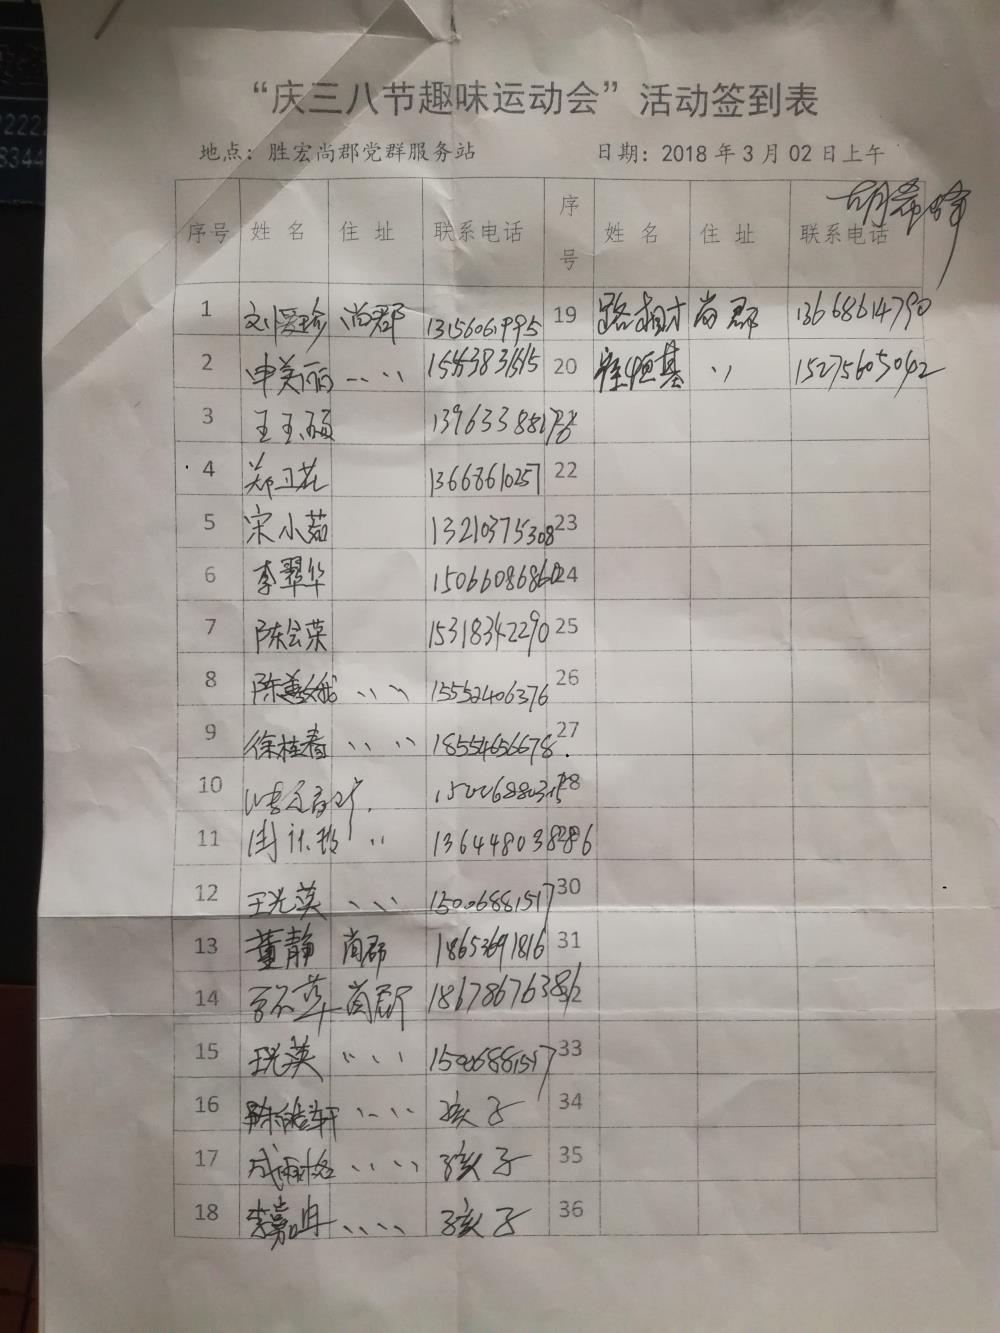 “庆三八节趣味运动会”活动签到表
地点：胜宏尚郡党群服务站 日期：2018年3月02日上午
序号 姓名 住址 联系电话 序号 姓名 住址 联系电话
1 刘爱珍 尚郡 19 路相才 尚郡 13668614790
2 申美丽 20 崔恒基 15275605042
3 王玉
4 郑卫花 13668610257 22
5 宋小茹 13210375308 23
6 李翠华 15066086860 24
7 陈会荣 15318342290 25
8 陈 15552406376 26
9 徐桂春 18554656678 27
10
11 13644803886
12 王光英 15006881517 30
13 董静 尚郡 18653691816 31
14 尚郡 18678676386
15 王光英 15006881517 33
16 陈 轩 孩子 34
17 成雨格 孩子 35
18 李嘉冉 孩子 36